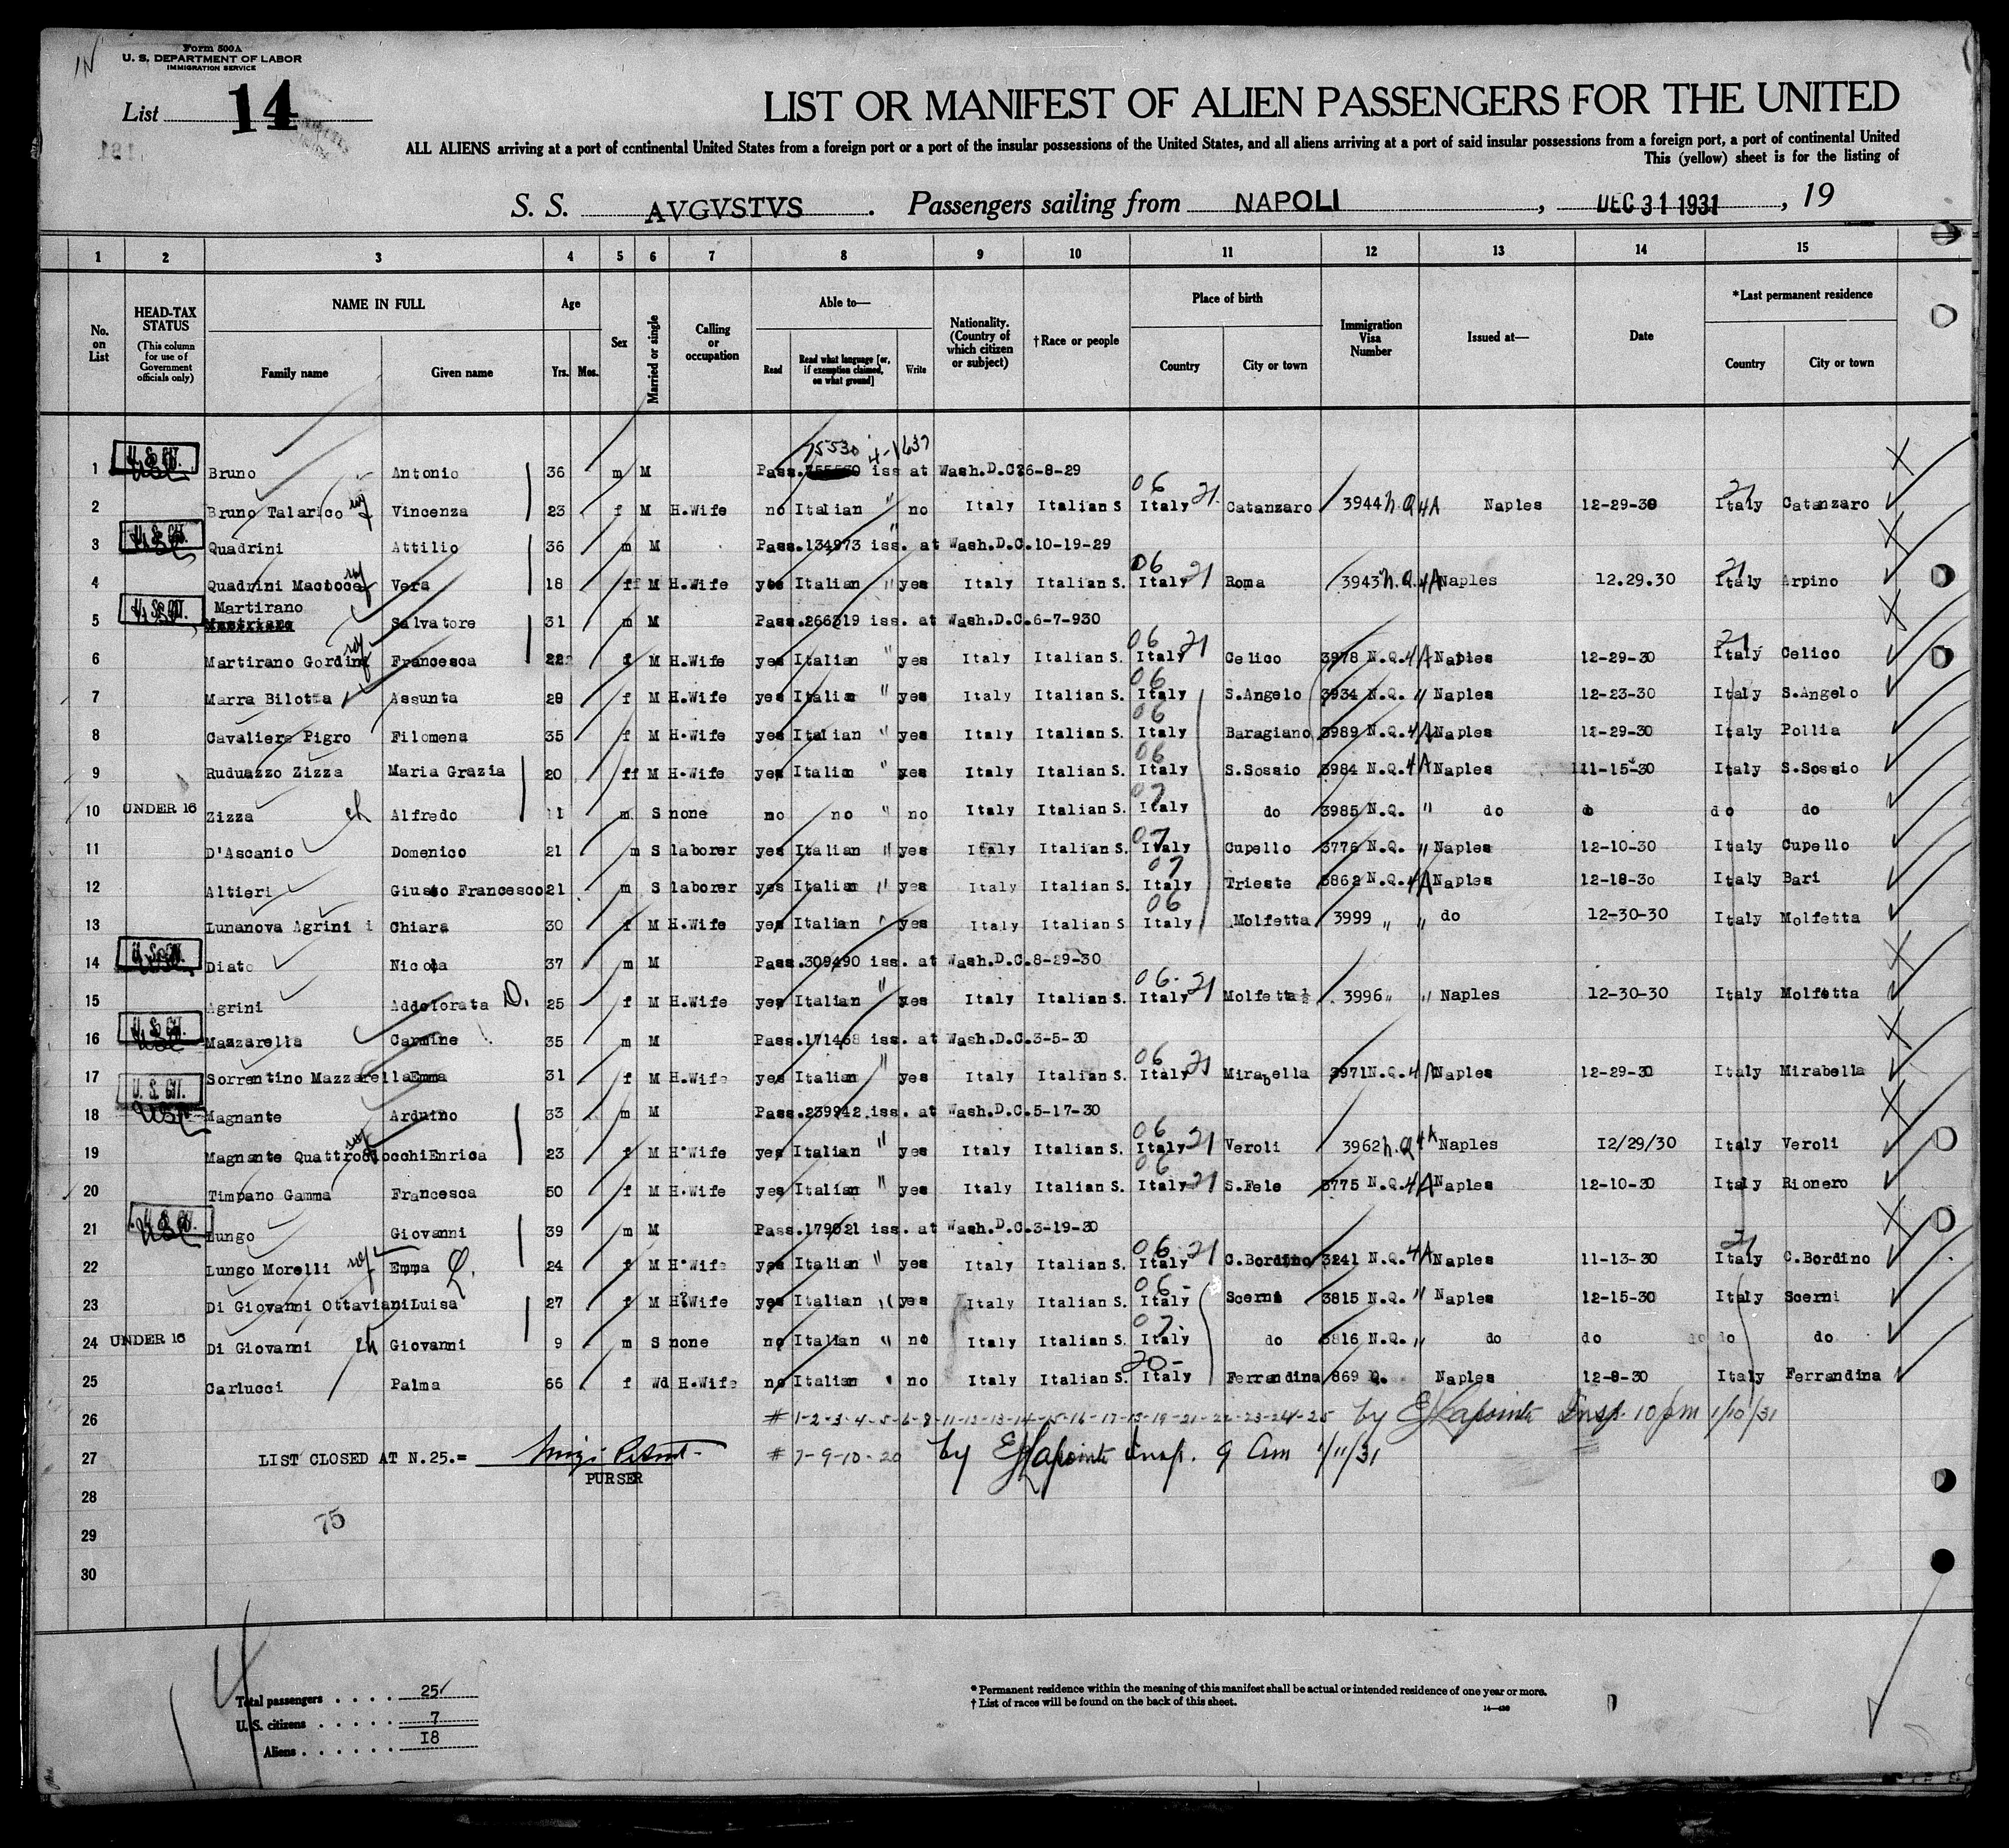 Form 500A
U. S. DEPARTMENT OF LABOR
IMMIGRATION SERVICE
List 14
LIST OR MANIFEST OF ALIEN PASSENGERS FOR THE UNITED
ALL ALIENS arriving at a port of continental United States from a foreign port or a port of the insular possessions of the United States, and all aliens arriving at a port of said insular possessions from a foreign port, a port of continental United
This (yellow) sheet is for the listing of
S. S. AVGVSTVS. Passengers sailing from NAPOLI, DEC 31 1931, 19
1 2 3 4 5 6 7 8 9 10 11 12 13 14 15
No. on List
HEAD-TAX STATUS (This column for use of Government officials only)
NAME IN FULL Family name Given name
Age Yrs. Mos.
Sex
Married or single
Calling or occupation
Able to— Read Read what language [or, if exemption claimed, on what ground] Write
Nationality. (Country of which citizen or subject)
†Race or people
Place of birth Country City or town
Immigration Visa Number
Issued at—
Date
*Last permanent residence Country City or town
1 Bruno Antonio 36 m M Pass. 75530 iss at Wash.D.C. 6-8-29
2 Bruno Talarico Vincenza 23 f M H.Wife no Italian no Italy Italian S 06 Italy 21 Catanzaro 3944 N.Q 4A Naples 12-29-30 21 Italy Catanzaro
3 Quadrini Attilio 36 m M Pass.134973 iss. at Wash.D.C.10-19-29
4 Quadrini Vera 18 f M H.Wife yes Italian " yes Italy Italian S. 06 Italy 21 Roma 3943 N.Q. 4A Naples 12.29.30 21 Italy Arpino
5 Martirano Salvatore 31 m M Pass.266319 iss. at Wash.D.C.6-7-930
6 Martirano Francesca 22 f M H.Wife yes Italian " yes Italy Italian S. 06 Italy 21 Celico 3978 N.Q. 4A Naples 12-29-30 21 Italy Celico
7 Marra Bilotta Assunta 28 f M H.Wife yes Italian " yes Italy Italian S. 06 Italy S.Angelo 3934 N.Q. " Naples 12-23-30 Italy S.Angelo
8 Cavaliere Pigro Filomena 35 f M H.Wife yes Italian " yes Italy Italian S. 06 Italy Baragiano 3989 N.Q. 4A Naples 12-29-30 Italy Pollia
9 Ruduazzo Zizza Maria Grazia 20 f M H.Wife yes Italian " yes Italy Italian S. 06 Italy S.Sossio 3984 N.Q. 4A Naples 11-15-30 Italy S.Sossio
10 UNDER 16 Zizza ch Alfredo 11 m S none no no " no Italy Italian S. 07 Italy do 3985 N.Q. " do do do do
11 D'Ascanio Domenico 21 m S laborer yes Italian " yes Italy Italian S. 07 Italy Cupello 3776 N.Q. " Naples 12-10-30 Italy Cupello
12 Altieri Giusto Francesco 21 m S laborer yes Italian " yes Italy Italian S. 07 Italy Trieste 3862 N.Q. 4A Naples 12-18-30 Italy Bari
13 Lunanova Agrini i Chiara 30 f M H.Wife yes Italian " yes Italy Italian S 06 Italy Molfetta 3999 " " do 12-30-30 Italy Molfetta
14 Diato Nicola 37 m M Pass.309490 iss. at Wash.D.C.8-29-30
15 Agrini Addolorata D. 25 f M H.Wife yes Italian " yes Italy Italian S. 06 Italy 21 Molfetta 3996 " " Naples 12-30-30 Italy Molfetta
16 Mazzarella Carmine 35 m M Pass.171468 iss. at Wash.D.C.3-5-30
17 Sorrentino Mazzarella Emma 31 f M H.Wife yes Italian " yes Italy Italian S. 06 Italy 21 Mirabella 3971 N.Q. 4A Naples 12-29-30 Italy Mirabella
U. S. CIT.
18 Magnante Arduino 33 m M Pass.239942 iss. at Wash.D.C.5-17-30
19 Magnante Quattrociocchi Enrica 23 f M H.Wife yes Italian " yes Italy Italian S. 06 Italy 21 Veroli 3962 N.Q 4A Naples 12/29/30 Italy Veroli
20 Timpano Gamma Francesca 50 f M H.Wife yes Italian " yes Italy Italian S. 06 Italy 21 S.Fele 3775 N.Q. 4A Naples 12-10-30 Italy Rionero
21 Lungo Giovanni 39 m M Pass.179021 iss. at Wash.D.C.3-19-30
22 Lungo Morelli Emma L. 24 f M H.Wife yes Italian " yes Italy Italian S. 06 Italy 21 C.Bordino 3241 N.Q. 4A Naples 11-13-30 21 Italy C.Bordino
23 Di Giovanni Ottaviani Luisa 27 f M H.Wife yes Italian " yes Italy Italian S. 06- Italy Scerni 3815 N.Q. " Naples 12-15-30 Italy Scerni
24 UNDER 16 Di Giovanni ch Giovanni 9 m S none no Italian " no Italy Italian S. 07- Italy do 3816 N.Q. " do do do do
25 Carlucci Palma 66 f Wd H.Wife no Italian " no Italy Italian S. 20- Italy Ferrandina 869 Q. Naples 12-8-30 Italy Ferrandina
26 # 1-2-3-4-5-6-8-11-12-13-14-15-16-17-18-19-21-22-23-24-25 by E Lapointe Insp. 10 pm 1/10/31
27 LIST CLOSED AT N.25.= # 7-9-10-20 by E Lapointe Insp. 9 am 1/11/31
PURSER
28
29
75
30
Total passengers . . . . 25
U. S. citizens . . . . . 7
Aliens . . . . . . 18
* Permanent residence within the meaning of this manifest shall be actual or intended residence of one year or more.
† List of races will be found on the back of this sheet.